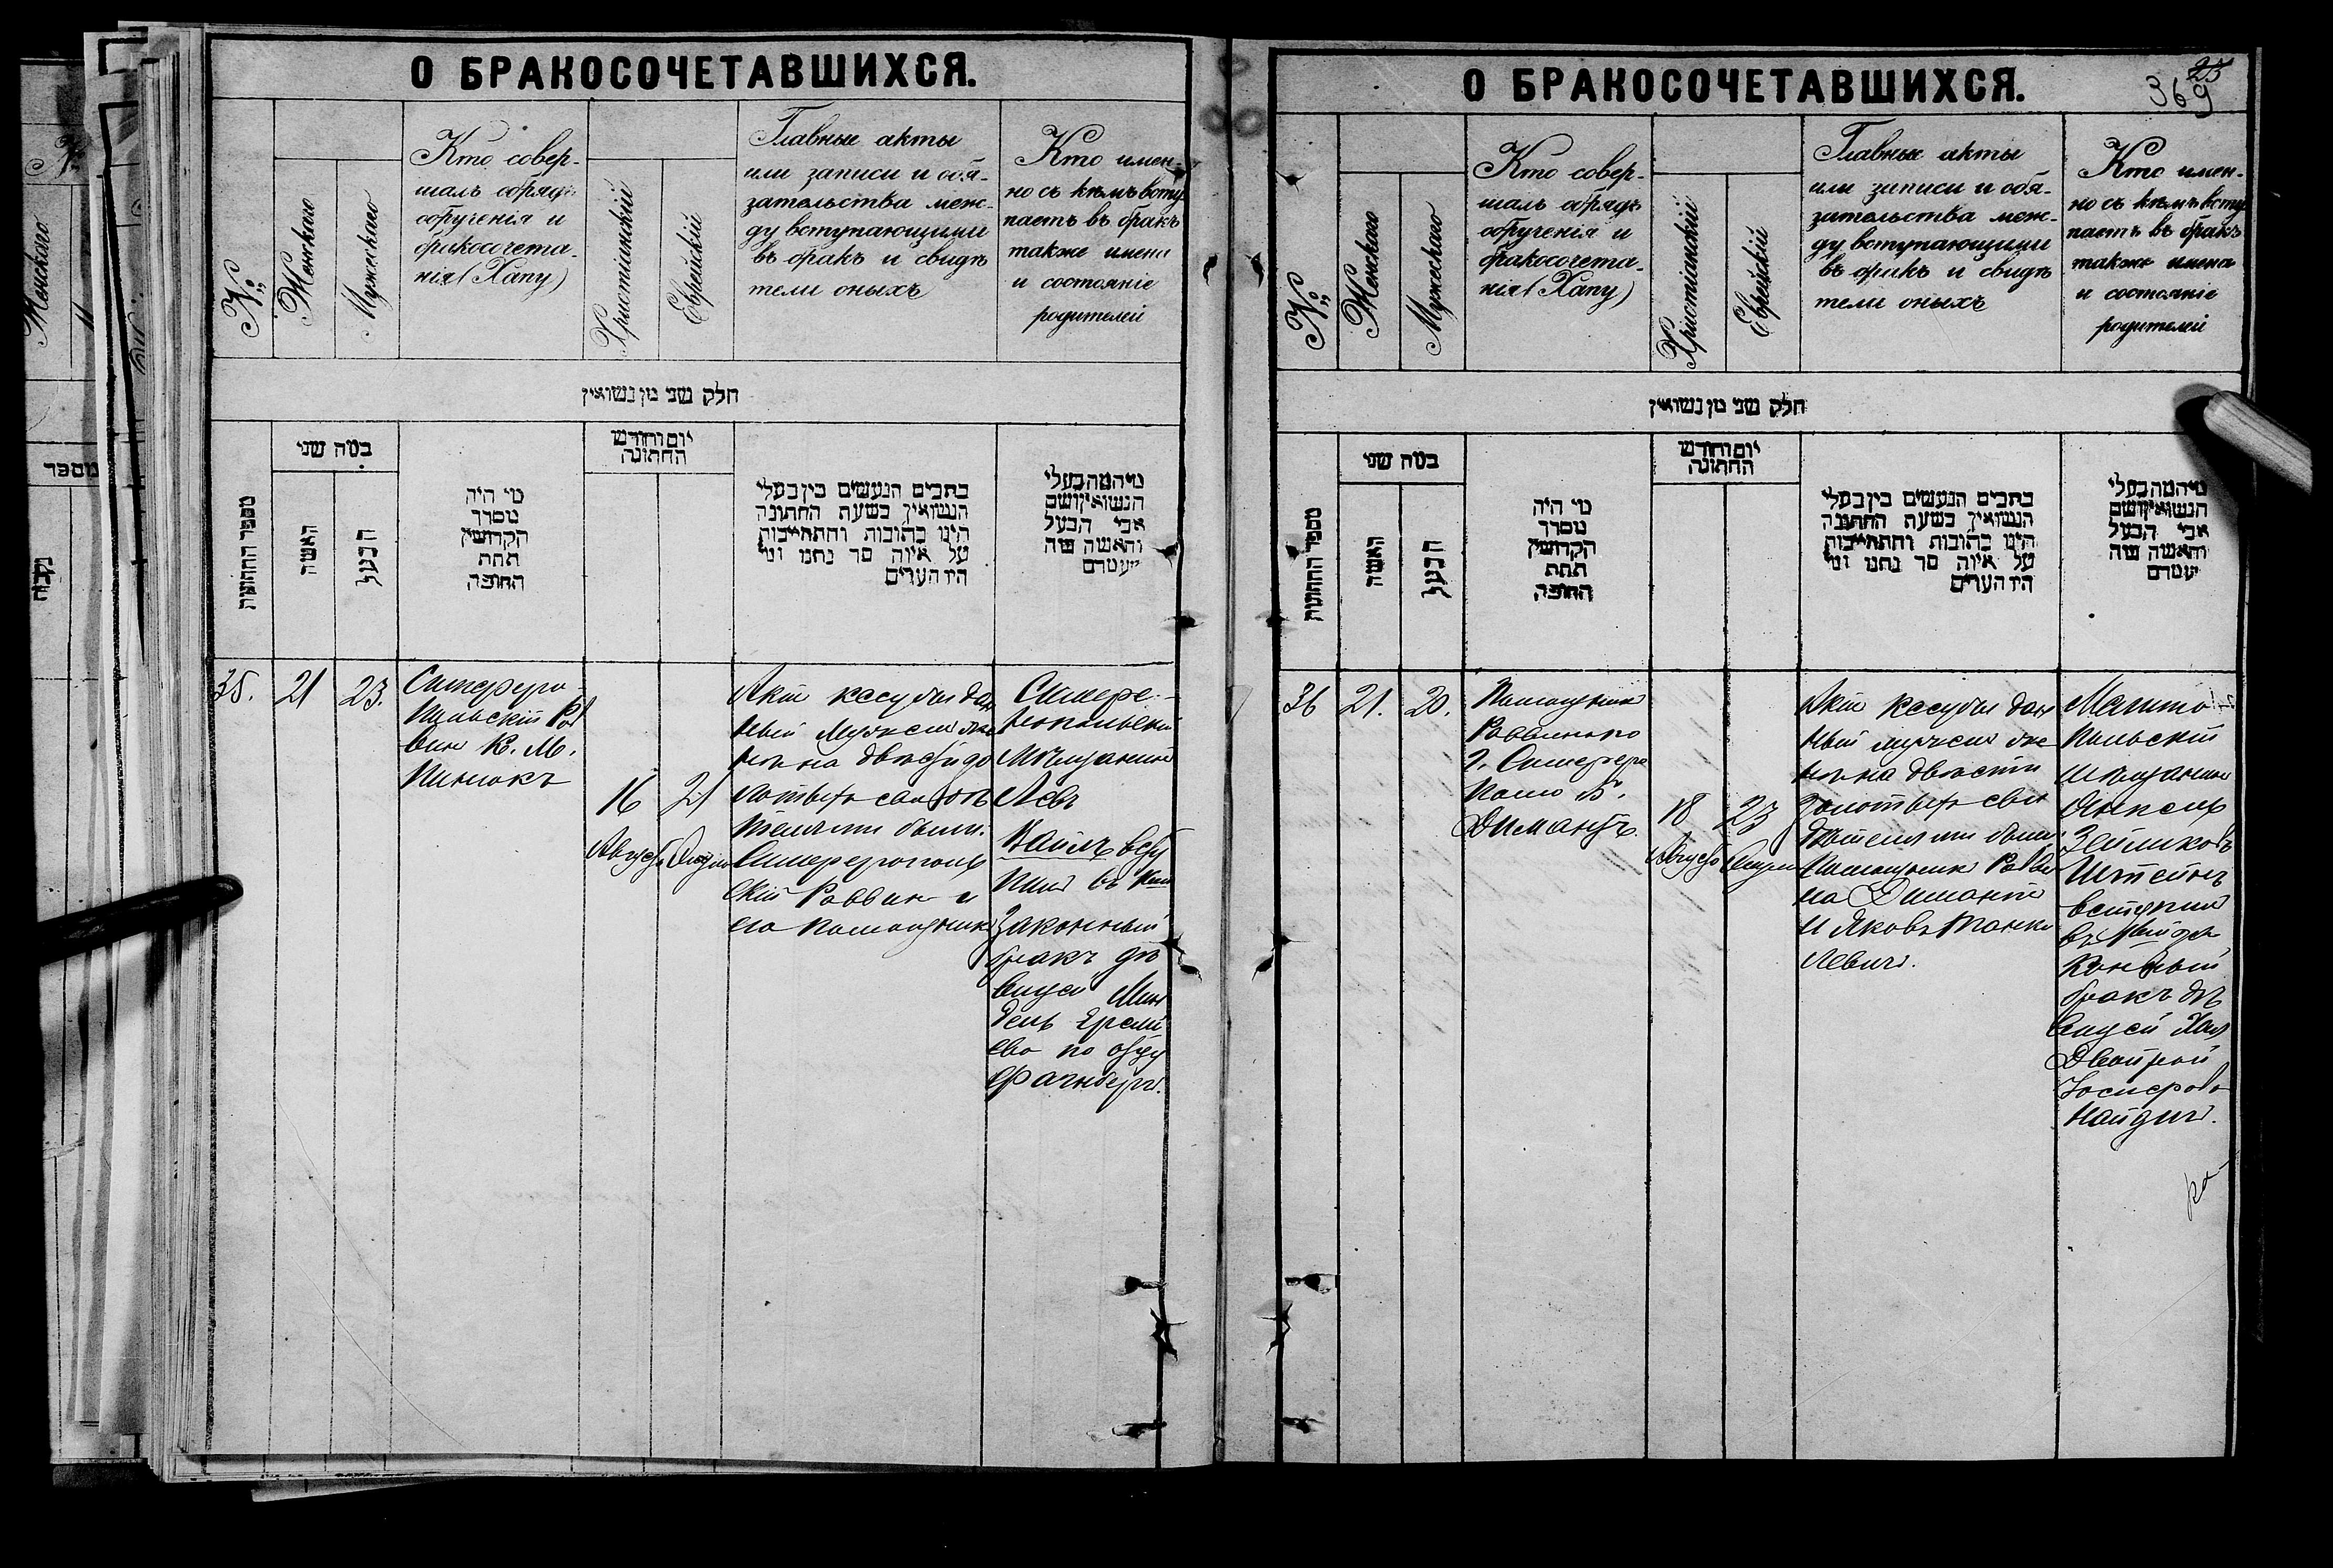 О БРАКОСОЧЕТАВШИХСЯ.
№
Женскаго
Мужескаго
Кто совер-
шалъ обрядъ
обрученія и
бракосочета-
нія (Хапу)
Христіанскій
Еврейскій
Главные акты
или записи и обя-
зательства меж-
ду вступающими
въ бракъ и свидѣ
тели оныхъ
Кто имен-
но съ кѣмъ всту
паетъ въ бракъ
также имена
и состояніе
родителей
חלק שני מן נשואין
מספר החתונות
כמה שני
האשה
הבעל
מי היה
מסדר
הקדושין
תחת
החופה
יום וחודש
החתונה
כתבים הנעשים בין בעלי
הנשואין בשעת החתונה
היינו כתובות והתחייבות
על איזה סך נתנו ומי
היו העדים
מי המה בעלי
הנשואין ושם
אבי הבעל
והאשה ומה
מעמדם
35.
21
23.
Симферо
польскій Рав
винъ К. М.
Пинтокъ
16
Августа
21
Акт кесубы дан
ный мужем же
нѣ на двѣсти зо
лотыхъ свидѣ
телями были
Симферополь
скій Раввинъ и
его помощникъ
Симферо-
польскій
мѣщанинъ
Левъ
Вайлъ всту
пилъ въ
законный
бракъ дѣ
вицей
по отцу
О БРАКОСОЧЕТАВШИХСЯ.
25
36 9
№
Женскаго
Мужескаго
Кто совер-
шалъ обрядъ
обрученія и
бракосочета-
нія (Хапу)
Христіанскій
Еврейскій
Главные акты
или записи и обя-
зательства меж-
ду вступающими
въ бракъ и свидѣ
тели оныхъ
Кто имен-
но съ кѣмъ всту
паетъ въ бракъ
также имена
и состояніе
родителей
חלק שני מן נשואין
מספר החתונות
כמה שני
האשה
הבעל
מי היה
מסדר
הקדושין
תחת
החופה
יום וחודש
החתונה
כתבים הנעשים בין בעלי
הנשואין בשעת החתונה
היינו כתובות והתחייבות
על איזה סך נתנו ומי
היו העדים
מי המה בעלי
הנשואין ושם
אבי הבעל
והאשה ומה
מעמדם
36
21.
20.
Помощникъ
Раввина
г. Симферо
поля Б.
Димантъ.
18
Августа
23
Акт кесубы дан
ный мужем же
нѣ на двѣсти
золотыхъ сви
дѣтелями были
помощник Равви
на Димантъ
и Яковъ Манке
левичъ.
Мелито
польскій
мѣщанинъ
Зейликовъ
Штейнъ
вступилъ
въ за
конный
бракъ дѣ
вицей Хая
Двойрой
Іосифово
Найдичъ.